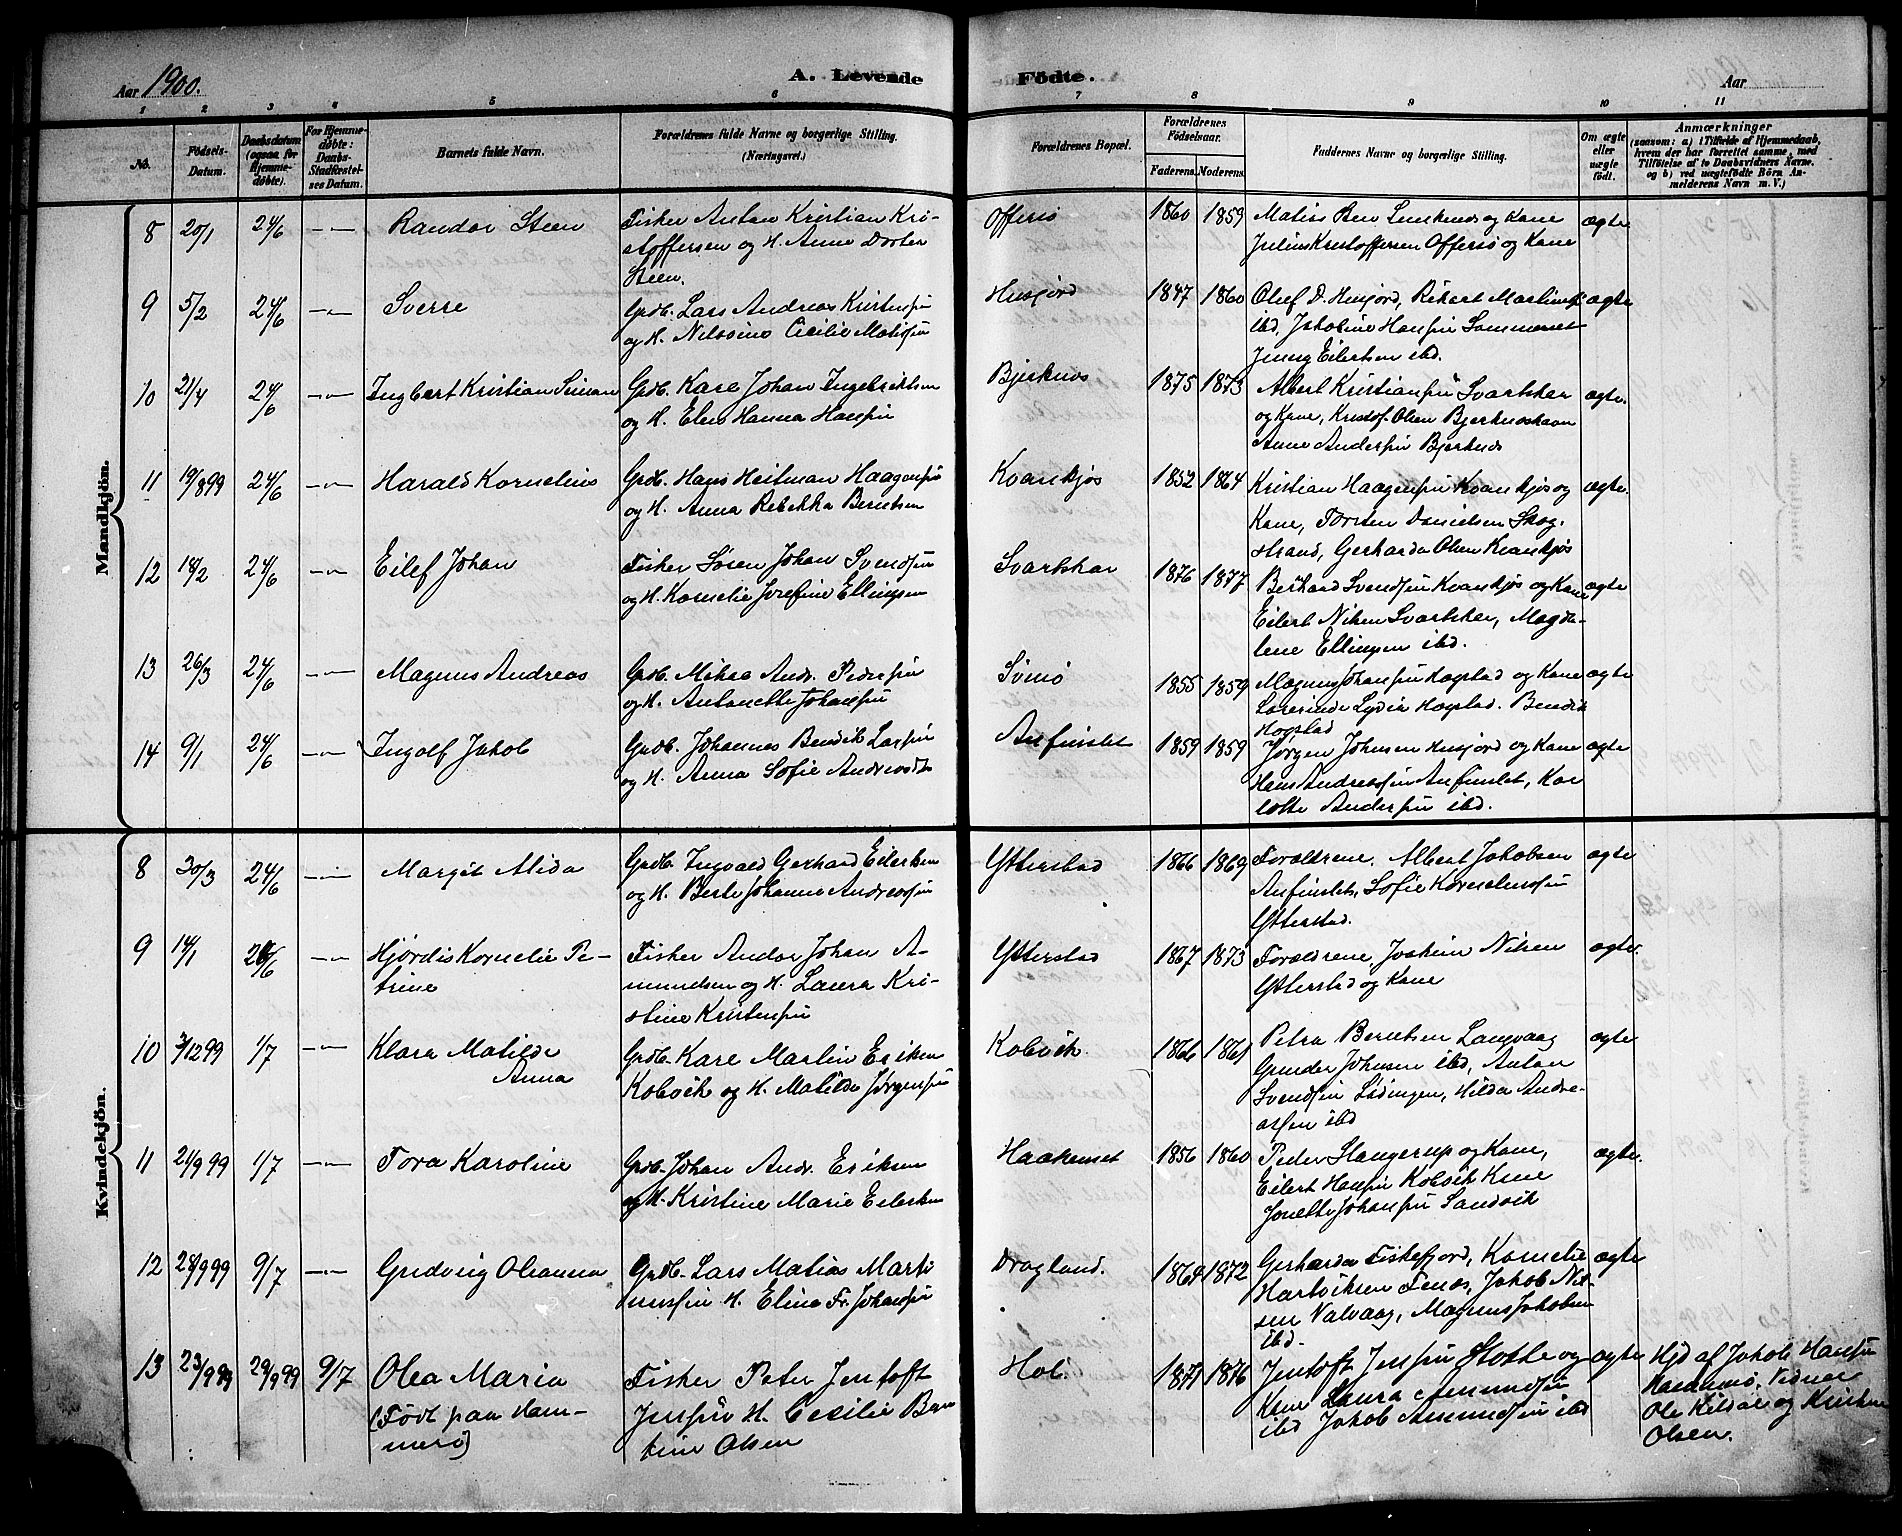 Aar 1900.
A. Levende
Födte.
Aar
1 2 3 4 5 6 7 8 9 10 11
No.
Födsels-Datum.
Daabsdatum (ogsaa for Hjemmedøbte).
For Hjemmedøbte: Daabs-Stadfæstelses Datum.
Barnets fulde Navn.
Forældrenes fulde Navne og borgerlige Stilling. (Næringsvei.)
Forældrenes Bopæl.
Forældrenes Födselsaar.
Faderens. Moderens.
Faddernes Navne og borgerlige Stilling.
Om ægte eller uægte født.
Anmærkninger
(saasom: a) i Tilfælde af Hjemmedaab, hvem der har forrettet samme, med Tilføielse af to Daabsvidners Navne. og b) ved uægtefödte Börn Anmelderens Navn m. V.)
Mandkjön.
8 20/1 24/6 —"— Randor Steen
Fisker Anton Kristian Kri-
stoffersen og H. Anna Dortea
Steen.
Offersø 1860 1859
Matias Ben
og Kone
Julius Kristoffersen Offersø og Kone
ægte
9 5/2 24/6 —"— Sverre
Grdb. Lars Andreas Kristensen
og H. Nilsine Cecilie Matisen
Husjord 1847 1860
Oluf D. Husjord, Rikart Martinsen
ibd, Jakobine Hansen Sommerset
Jenny Eilertsen ibd.
ægte
10 21/4 24/6 —"— Ingbert Kristian Simon
Grdb. Karl Johan Ingebriktsen
og H. Elen Hanna Hansen
Bjerknes 1875 1873
Albert Kristiansen Svartskar
og Kone, Kristof. Olsen Bjerkneshavn
Anne Andersen Bjerknes
ægte.
11 19/8 99 24/6 —"— Harald Kornelius
Grdb. Hans Heitman Haagensen
og H. Anna Rebekka Berntsen
Kvankjøs 1852 1864
Kristian Haagensen Kvankjøs og
Kone, Torsten Danielsen Skog-
strand, Gerharda Olsen Kvankjøs
ægte.
12 18/2 24/6 —"— Eilef Johan
Fisker Søren Johan Svendsen
og H. Kornelie Josefine Ellingsen
Svartskar 1876 1877
Berhard Svendsen Kvankjøs og Kone
Eilert Nilsen Svartskar, Magda-
lene Ellingsen ibd.
ægte
13 26/3 24/6 —"— Magnus Andreas
Grdb. Mikal Andr. Pedersen
og H. Antonette Johansen
Svinø 1855 1859
Magnus Johansen Hogstad og Kone
Lærerinde Lydia Hogstad. Bendik
Hogstad
ægte
14 9/1 24/6 —"— Ingolf Jakob
Grdb. Johannes Bendik Larsen
og H. Anna Sofie Andreasdt.
Anfinslet 1859 1859
Jørgen Johnsen Husjord og Kone
Hans Andreassen Anfinslet, Kar
lotte Andersen ibd.
ægte
Kvindekjön.
8 30/3 24/6 —"— Margit Alida
Grdb. Ingvald Gerhard Eilertsen
og H. Berit Johanna Andreassen
Ytterstad 1866 1869
Forældrene, Albert Jakobsen
Anfinslet, Sofie Korneliussen
Ytterstad.
ægte
9 14/1 24/6 —"— Hjørdis Kornelie Pe-
trine
Fisker Andor Johan A-
mundsen og H. Laura Kri-
stine Kristensen
Ytterstad 1867 1873
Forældrene, Joakim Nilsen
Ytterstad og Kone
ægte.
10 3/12 99 1/7 —"— Klara Matilde
Anna
Grdb. Karl Martin Eriksen
Kobvik og H. Matilde Jørgensen
Kobvik. 1866 1861
Petra Berntsen Langvaag
Gunder Johnsen ibd, Anton
Svendsen Lødingen, Hilda Andre-
assen ibd
ægte
11 21/9 99 1/7 —"— Tora Karoline
Grdb. Johan Andr. Eriksen
og H. Kristine Marie Eilertsen
Haakenset 1856 1860
Peder Hangerup og Kone,
Eilert Hansen Kobvik Kone
Jonette Johansen Sandvik
ægte.
12 28/9 99 9/7 —"— Gudveig Oleanna
Grdb. Lars Matias Marti
nussen H. Elina Fr. Johansen
Dragland. 1864 1872
Gerharda Fiskefjord, Kornelie
Hartviksen Fenes, Jakob Nil-
sen Valvaag, Magnus Jakobsen
ibd.
ægte
13 23/9 99 29/9 99 9/7 Olea Maria
(Født paa Ham-
merø)
Fisker Peter Jentoft
Jensen H. Cecilie Ber
tine Olsen
Hol. 1877 1876
Jentoft Jensen Stotle og
Kone Laura Amundsen
ibd Jakob Amundsen ibd
ægte
Hjd af Jakob Hansen
Hammerø. Vidner
Ole Kildal og Kristen
Olsen.